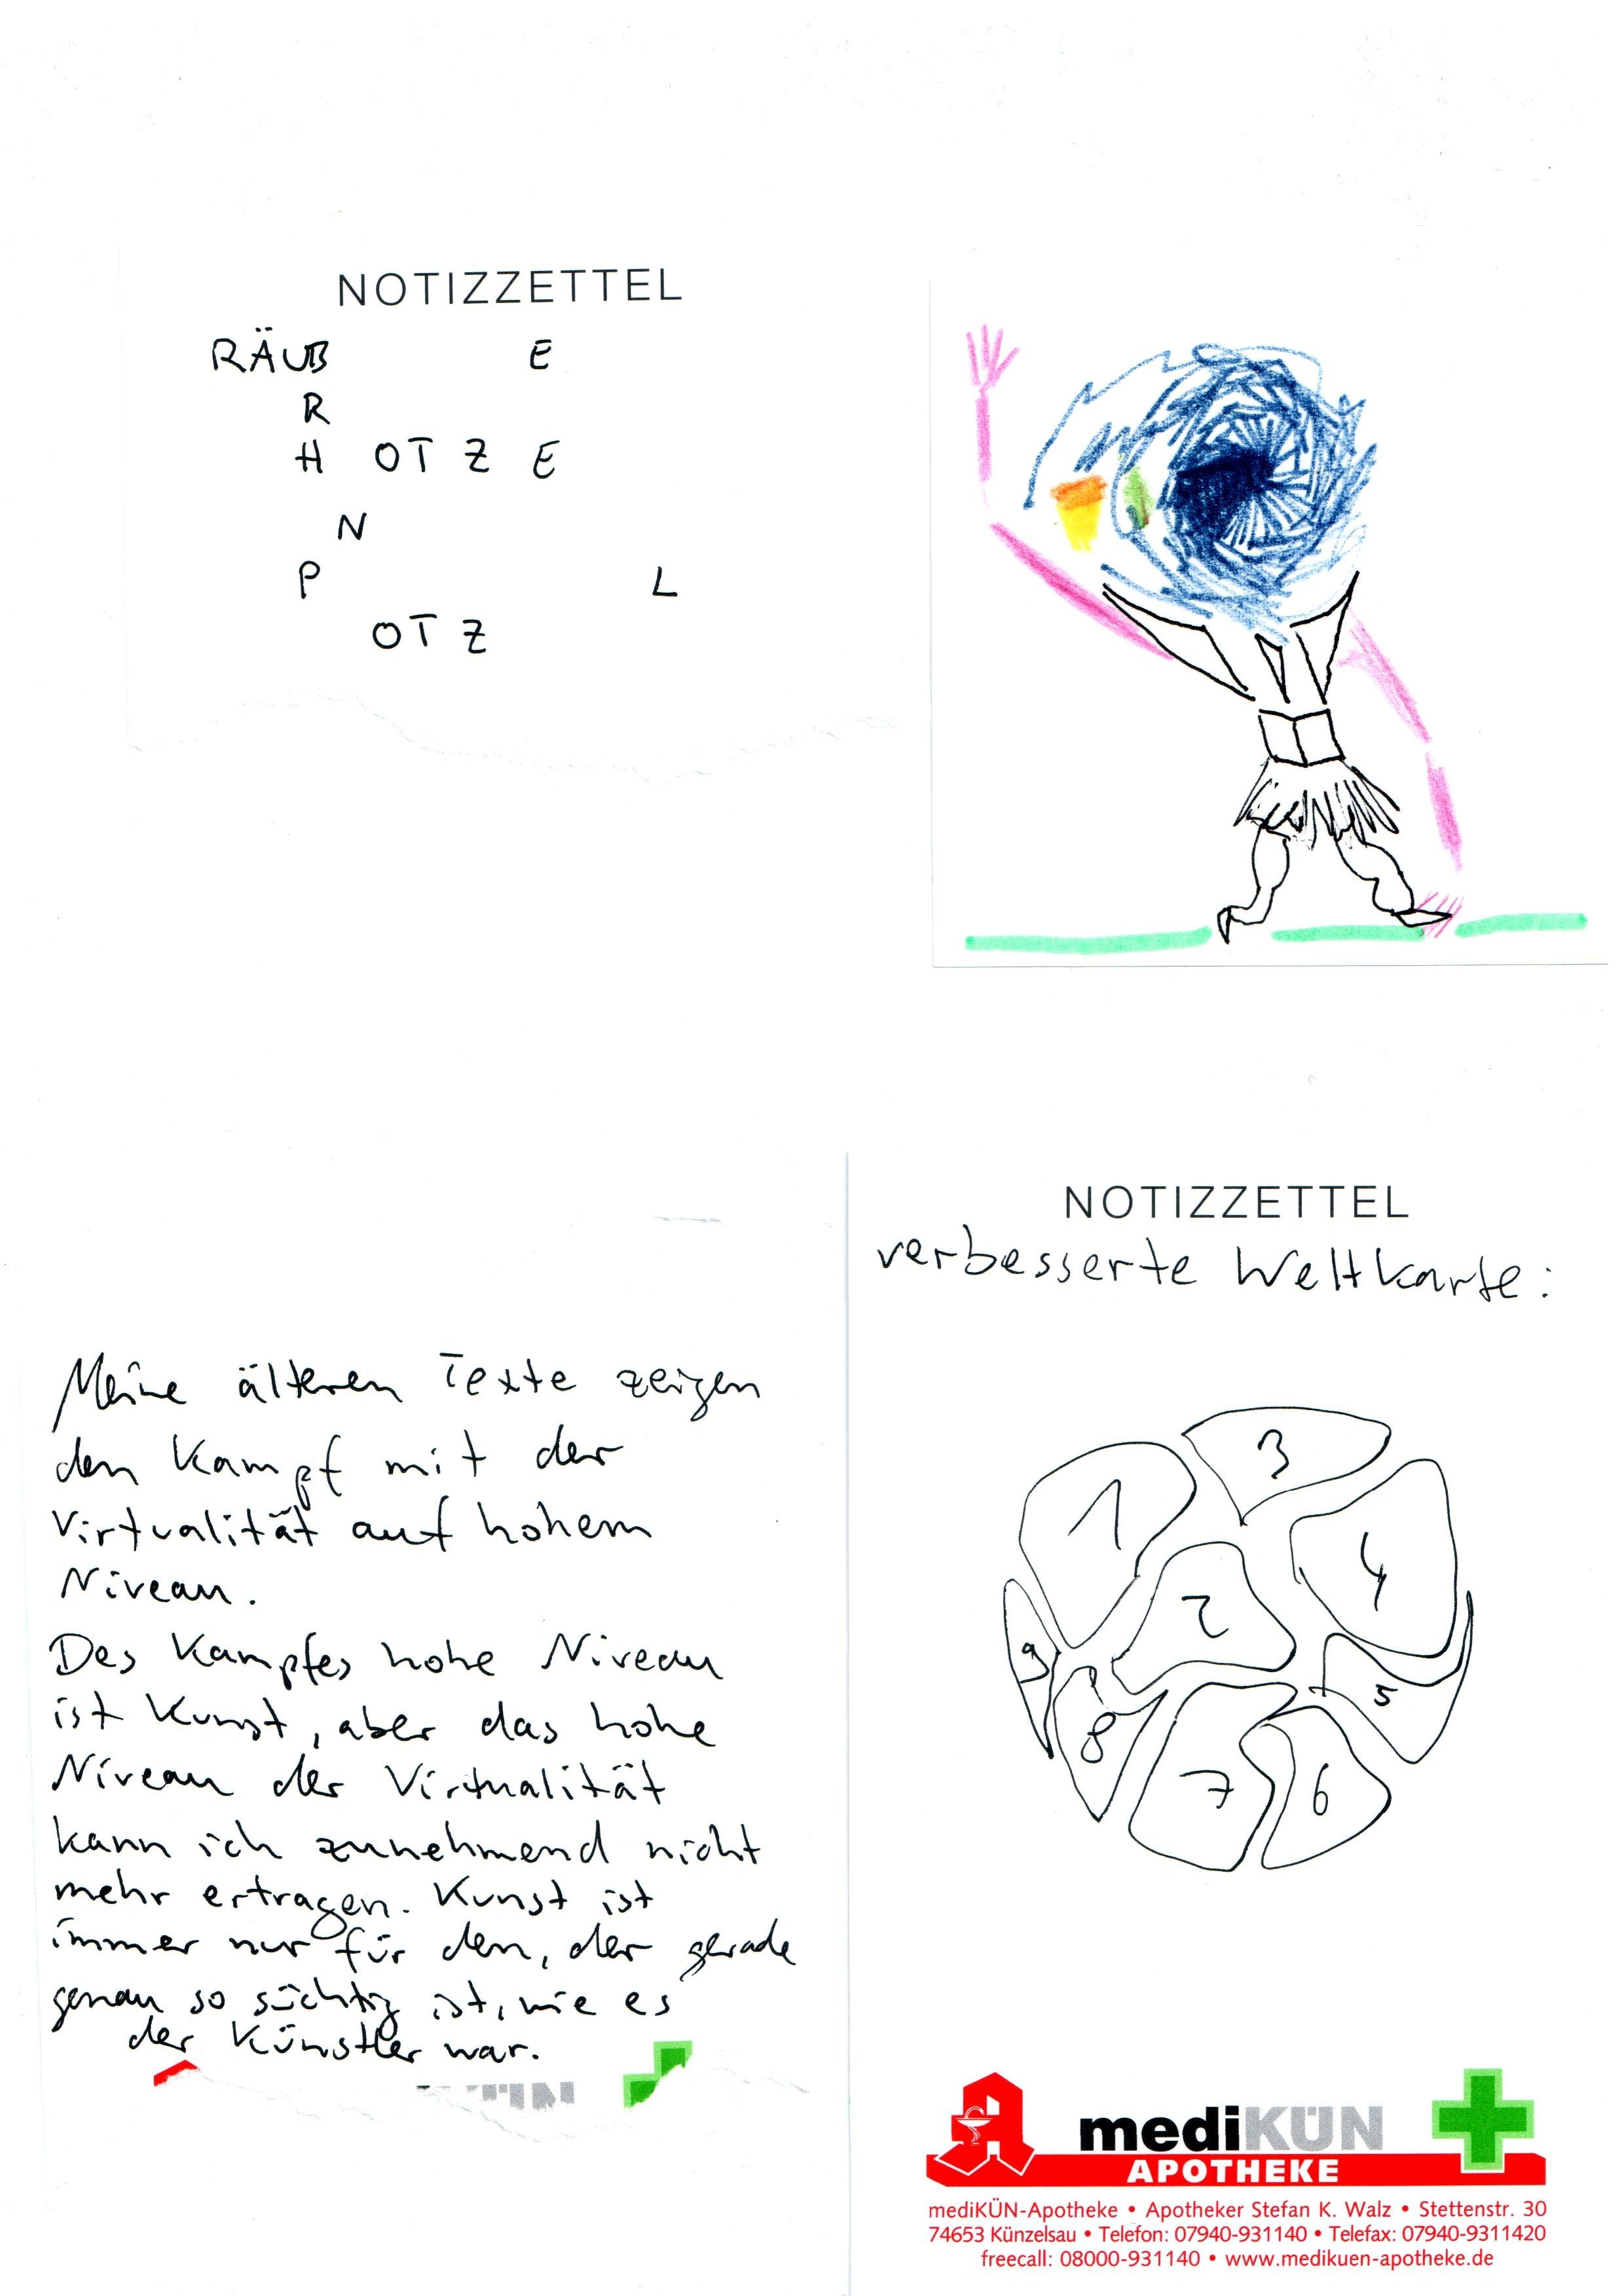 NOTIZZETTEL
RÄUB E
R
H OTZ E
N
P L
OTZ
Meine älteren Texte zeigen
den Kampf mit der
Virtualität auf hohem
Niveau.
Des Kampfes hohe Niveau
ist Kunst, aber das hohe
Niveau der Virtualität
kann ich zunehmend nicht
mehr ertragen. Kunst ist
immer nur für den, der gerade
genau so süchtig ist, wie es
der Künstler war.
NOTIZZETTEL
verbesserte Weltkarte:
3
1
4
2
9
5
8
7
6
mediKÜN
APOTHEKE
mediKÜN-Apotheke • Apotheker Stefan K. Walz • Stettenstr. 30
74653 Künzelsau • Telefon: 07940-931140 • Telefax: 07940-9311420
freecall: 08000-931140 • www.medikuen-apotheke.de